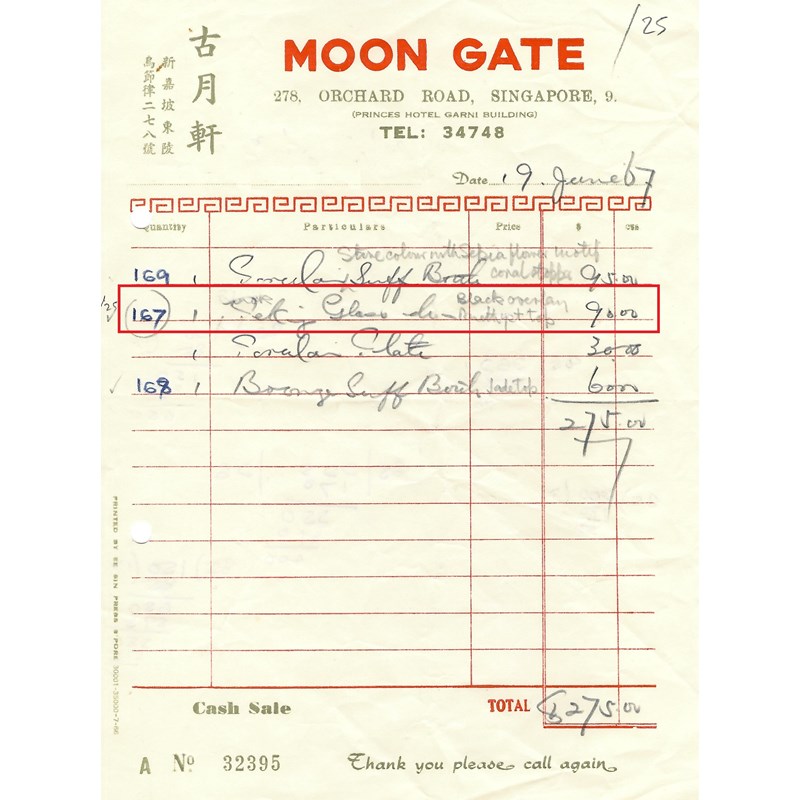 /25
古月軒
新嘉坡東陵
烏節律二七八號
MOON GATE
278, ORCHARD ROAD, SINGAPORE, 9.
(PRINCES HOTEL GARNI BUILDING)
TEL: 34748
Date 19. June 67
Quantity Particulars Price $ cts
Stone colour with Sepia flower motif
coral stopper
169 1 Porcelain Snuff Bottle 95.00
1/25 167 1 Peking Glass do Black overlay 90.00
Amethyst top
1 Porcelain Plate 30.00
168 1 Bronze Snuff Bottle Jade top 60.00
275.00
Cash Sale TOTAL $275.00
A No 32395 Thank you please call again
PRINTED BY EE SIN PRESS S'PORE